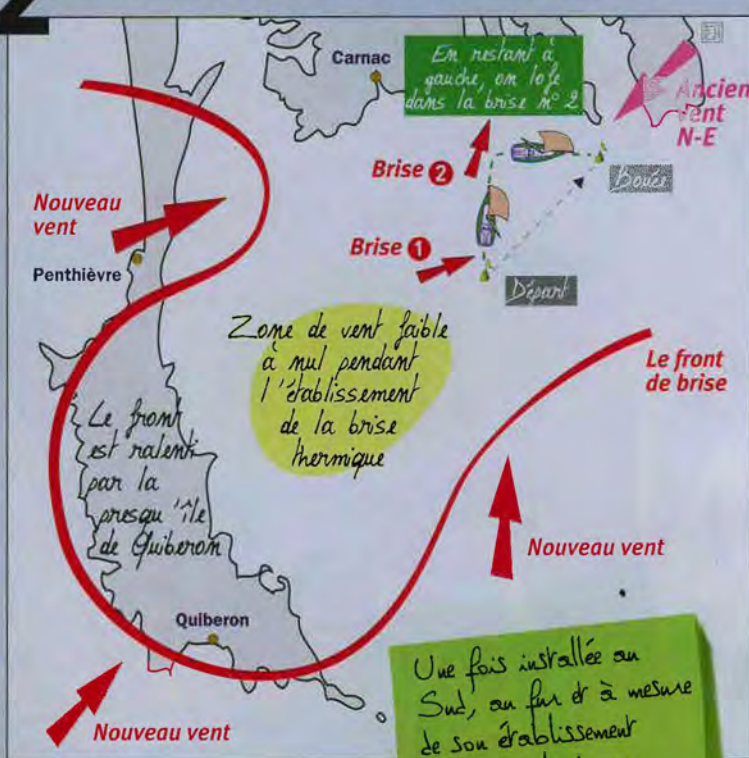 2
Carnac
En restant à
gauche, on lofe
dans la brise n° 2
Ancien
vent
N-E
Brise 2
Bouée
Nouveau
vent
Brise 1
Penthièvre
Départ
Zone de vent faible
à nul pendant
l'établissement
de la brise
thermique
Le front
de brise
Le front
est ralenti
par la
presqu'île
de Quiberon
Nouveau vent
Quiberon
Une fois installée au
Sud, au fur et à mesure
de son établissement
Nouveau vent